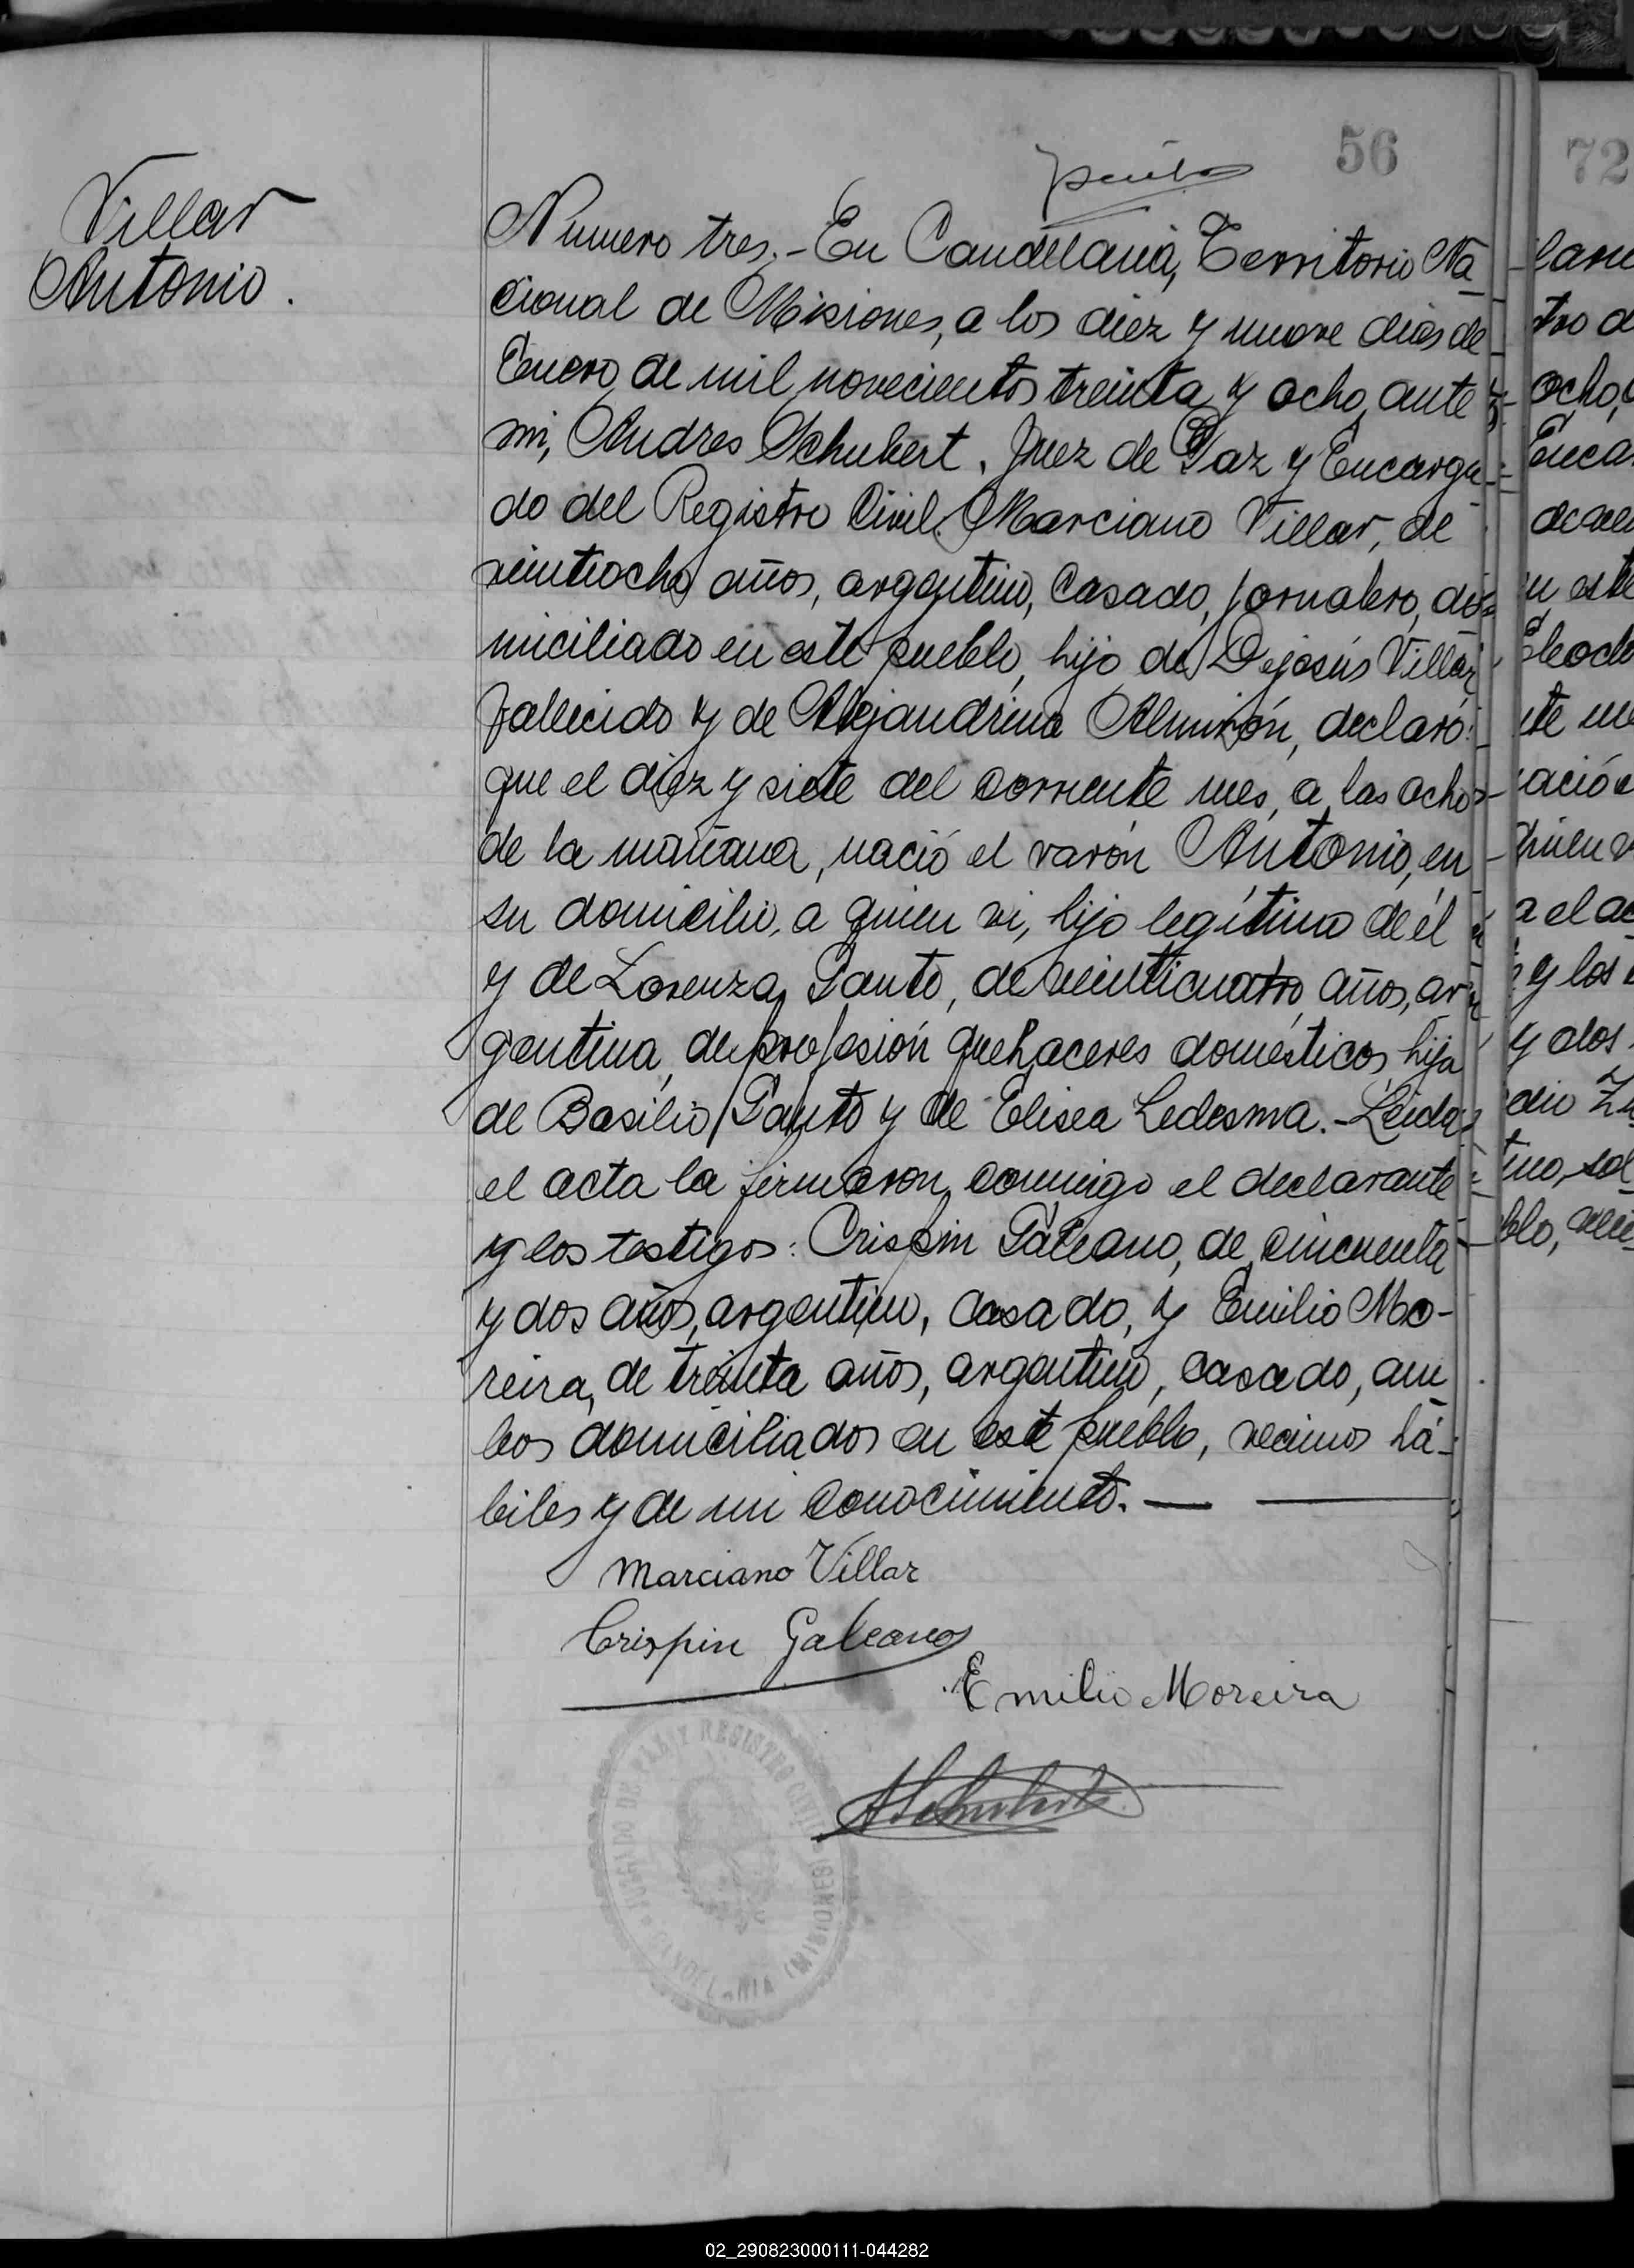 56
72
Villar
Antonio.
Numero tres.- En Candelaria, Territorio Na
cional de Misiones, a los diez y nueve dias de
Enero de mil novecientos treinta y ocho, ante
mi, Andres Schubert, Juez de Paz y Encarga-
do del Registro Civil, Marciano Villar, de
veintiocho años, argentino, casado, jornalero, do-
miciliado en este pueblo, hijo de Dejesús Villar,
fallecido y de Alejandrina Almirón, declaró:
que el diez y siete del corriente mes, a las ocho
de la mañana, nació el varón Antonio, en
su domicilio, a quien vi, hijo legítimo de él
y de Lorenza, de veinticuatro años, ar
gentina, de profesión quehaceres domésticos, hija
de Basilio y de Elisea Ledesma.- Leida
el acta la firmaron conmigo el declarante
y los testigos: Crispin Galeano, de cincuenta
y dos años, argentino, casado, y Emilio Mo-
reira, de treinta años, argentino, casado, am
bos domiciliados en este pueblo, vecinos há-
biles y de mi conocimiento.
Marciano Villar
Crispin Galeano
Emilio Moreira
ASchubert
02_290823000111-044282